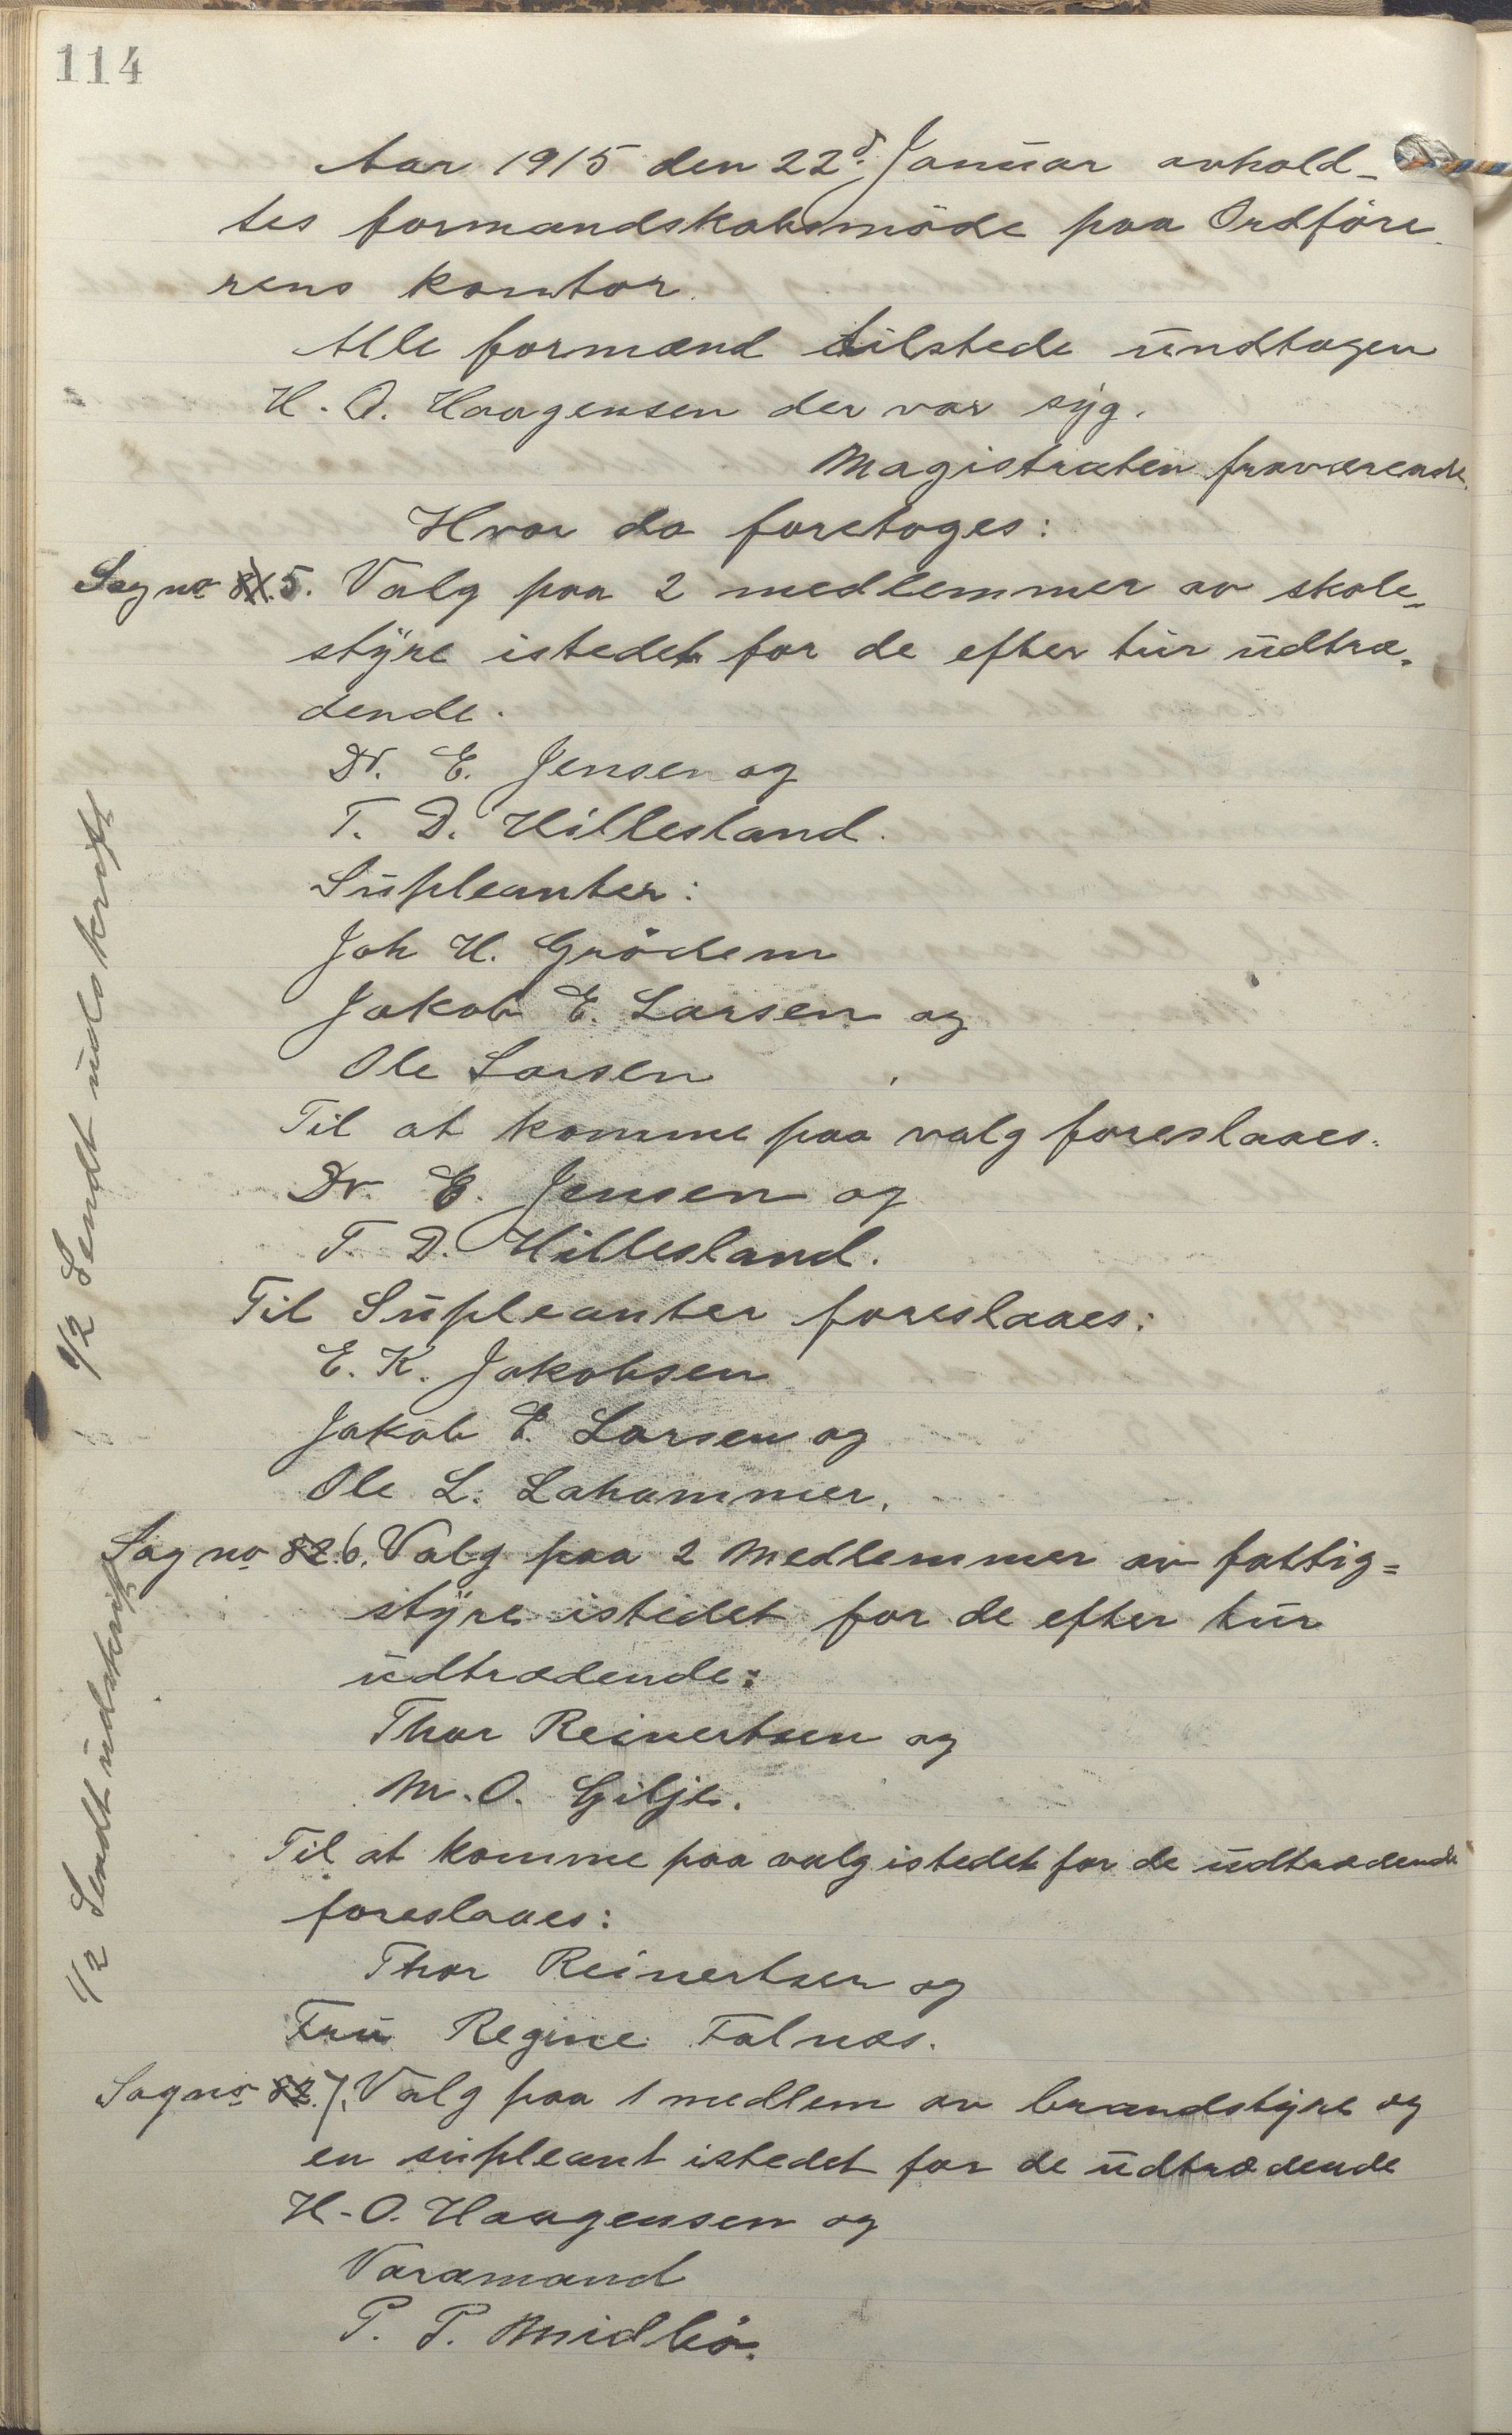 114
Aar 1915 den 22d. Januar avhold-
tes formandskabsmöde paa Ordföre
rens kontor.
Alle formænd tilstede undtagen
H. O. Haagensen der var syg.
Magistraten fraværende.
Hvor da foretoges:
Sag no 81. 5. Valg paa 2 medlemmer av skole-
styre istedet for de efter tur udtræ-
dende.
Dr. E. Jensen og
T. D. Hillesland.
Supleanter:
Joh H. Grödem
Jakob E. Larsen og
Ole Larsen
Til at komme paa valg foreslaaes.
Dr. E. Jensen og
T. D. Hillesland.
Til Supleanter foreslaaes:
E. K. Jakobsen
Jakob E. Larsen og
Ole L. Lahammer.
1/2 Sendt udskrift
Sag no 82. 6. Valg paa 2 Medlemmer av fattig=
styre istedet for de efter tur
udtrædende:
Thor Reinertsen og
M. O. Gilje.
Til at komme paa valg istedet for de udtrædende
foreslaaes:
Thor Reinertsen og
Fru Regine Falnæs.
1/2 Sendt udskrift
Sag no 82. 7. Valg paa 1 medlem av brandstyre og
en supleant istedet for de udtrædende
H. O. Haagensen og
Varamand
P. P. Midbö.